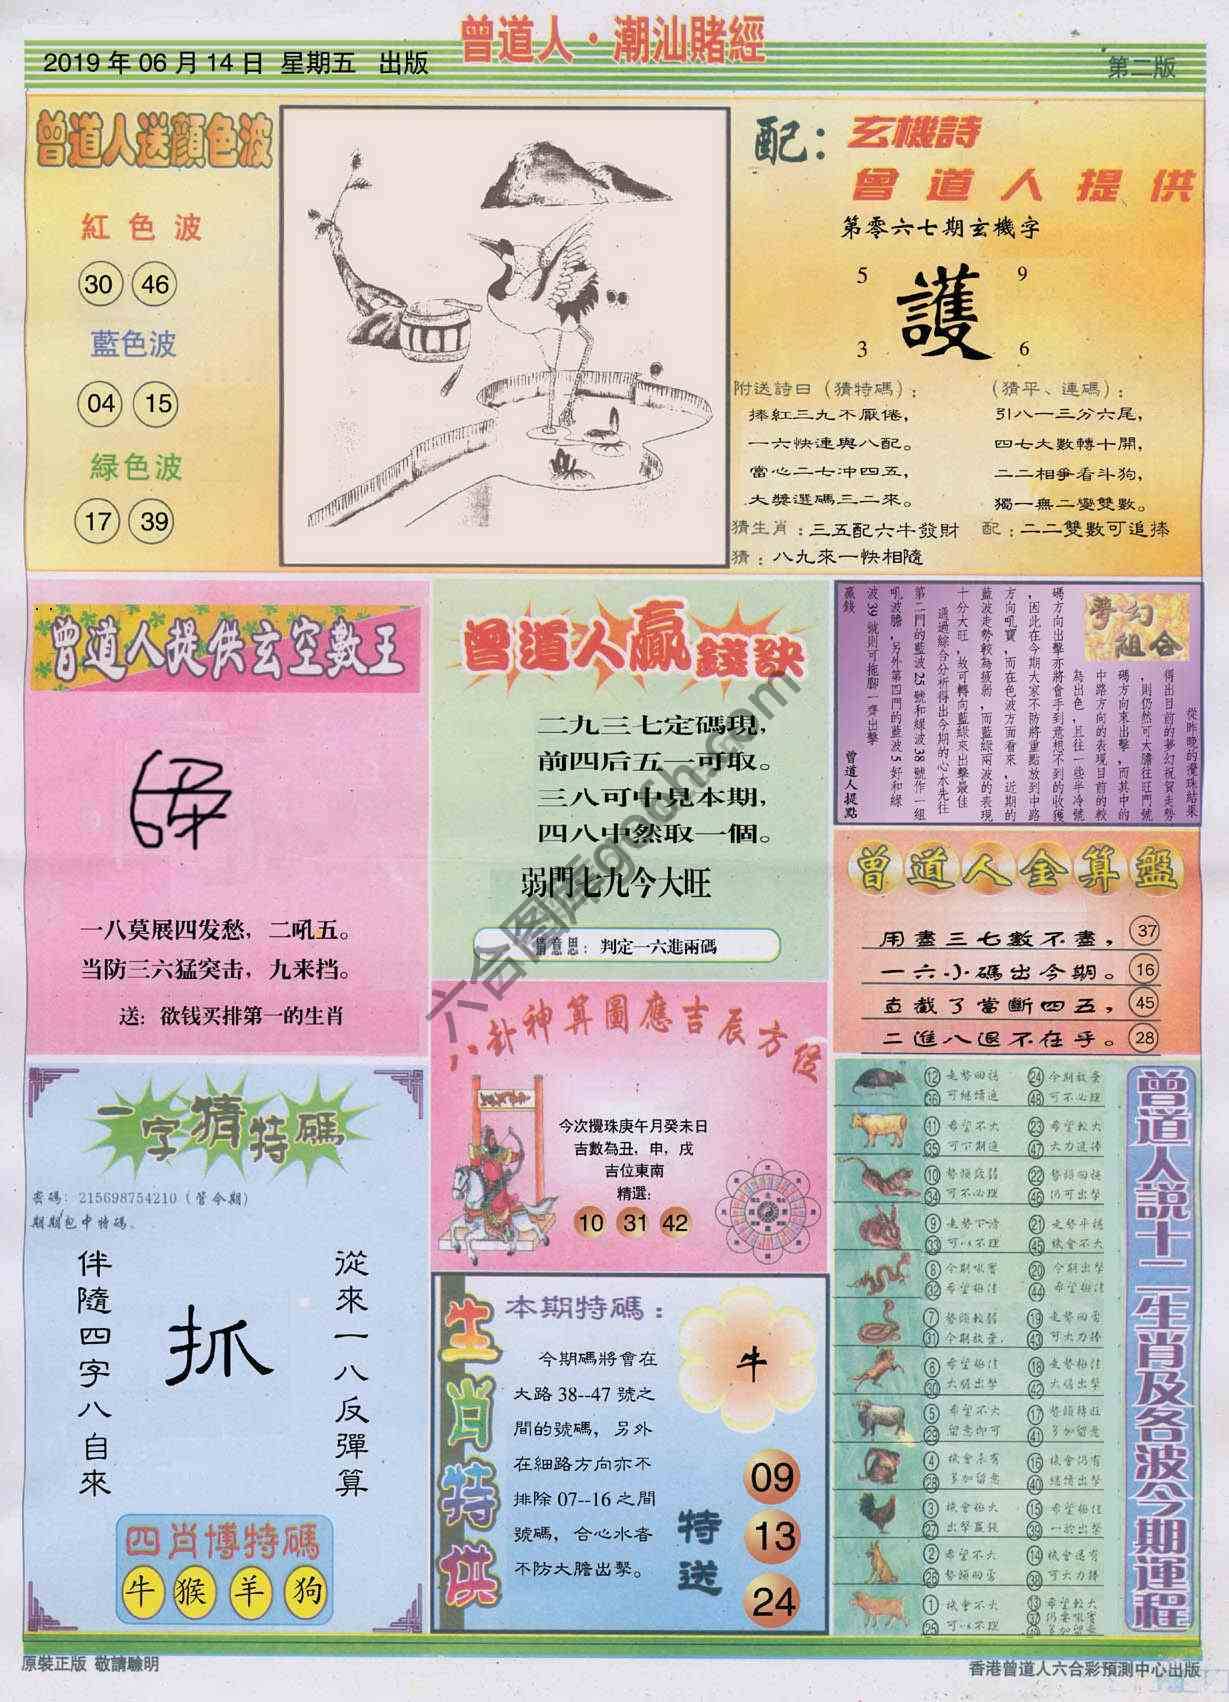 2019年06月14日 星期五 出版
曾道人·潮汕賭經
第二版
曾道人送顏色波
紅色波
30 46
藍色波
04 15
綠色波
17 39
配:
玄機詩
曾道人提供
第零六七期玄機字
5 9
護
3 6
附送詩曰(猜特碼):
捧紅三九不厭倦,
一六快連與八配。
當心二七沖四五,
大獎選碼三二來。
(猜平、連碼):
引八一三分六尾,
四七大數轉十開,
二二相爭看斗狗,
獨一無二變雙數。
猜生肖:三五配六牛發財
配:二二雙數可追捧
猜:八九來一快相隨
曾道人提供玄空數王
一八莫展四发愁,二吼五。
当防三六猛突击,九来挡。
送:欲钱买排第一的生肖
曾道人贏錢訣
二九三七定碼現,
前四后五一可取。
三八可中見本期,
四八中然取一個。
弱門七九今大旺
猜意思:判定一六進兩碼
夢幻組合
從昨晚的攪珠結果
得出目前的夢幻祝賀走勢
,則仍然可大膽往旺門號
碼方向來出擊,而其中的
中路方向的表現目前的較
為出色,且往一些半冷號
碼方向出擊亦將會手到意想不到的收獲
,因此在今期大家不防將重點放到中路
方向吼寶,而在色波方面看來,近期的
藍波走勢較為疲弱,而藍綠兩波的表現
十分大旺,故可轉向藍綠來出擊最佳
通過綜合分析得出今期的心水先往
第二門的藍波25號和綠波38號作一組
吼波膽,另外第四門的藍波5好和綠
波39號則可拖腳一齊出擊
贏錢
曾道人提點
曾道人金算盤
用盡三七數不盡, 37
一六小碼出今期。 16
直截了當斷四五, 45
二進八退不在乎。 28
八卦神算圖應吉辰方位
今次攪珠庚午月癸未日
吉數為丑,申,戌
吉位東南
精選:
10 31 42
一字猜特碼
密碼:215698754210(管今期)
期期包中特碼。
從來一八反彈算
抓
伴隨四字八自來
四肖博特碼
牛 猴 羊 狗
生肖特供
本期特碼:
今期碼將會在
大路38--47號之
間的號碼,另外
在細路方向亦不
排除07--16之間
號碼,合心水者
不防大膽出擊。
牛
特送
09
13
24
曾道人說十二生肖及各波今期運程
12 走勢回穩 24 今期放棄
36 可繼續追 48 可不必理
11 希望不大 23 希望較大
35 可下期追 47 大力追捧
10 勢頭較弱 22 勢頭回穩
34 可不必理 46 仍可出擊
9 走勢下滑 21 走勢平穩
33 可以不理 45 機會不大
8 今期吼實 20 今期出擊
32 希望極佳 44 希望極佳
7 勢頭較弱 19 走勢回雲
31 今期放棄 43 可大力捧
6 希望極佳 18 走勢極佳
30 大膽出擊 42 大膽出擊
5 希望不大 17 勢頭特旺
29 留意即可 41 多加留意
4 機會未有 16 機會仍有
28 多加留意 40 繼續出擊
3 機會極大 15 希望極佳
27 出擊贏錢 39 一於出擊
2 希望不大 14 機會還有
26 勢頭回雲 38 可大力捧
1 機會不大 13 希望較大
25 可以不理 37 仍要吼實
多加留意
六合图库gooh.com
原裝正版 敬請驗明
香港曾道人六合彩預測中心出版